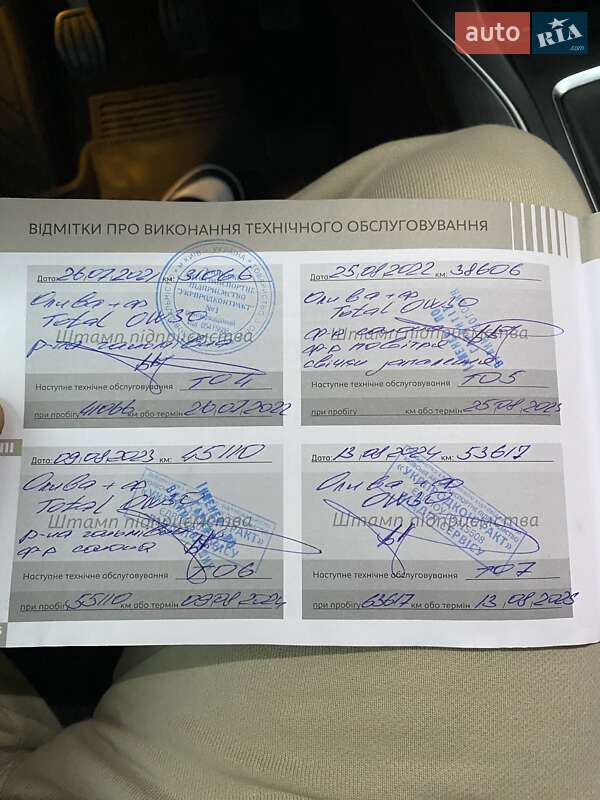 auto RIA
.com
ВІДМІТКИ ПРО ВИКОНАННЯ ТЕХНІЧНОГО ОБСЛУГОВУВАННЯ
Дата: 26,07,2021 км: 31066
Олива + ф
Total 0W30
Штамп підприємства
р-на
Наступне технічне обслуговування ТО 4
при пробігу 41066 км або термін 26,07,2022
Дата: 25,08,2022 км: 38606
Олива + ф
Total 0W30
ф-р салона
Штамп підприємства
ф-р повітря
свічки запалення
Наступне технічне обслуговування ТО5
при пробігу км або термін 25,08,2023
Дата: 09,08,2023 км: 45110
Олива + ф
Total 0W30
Штамп підприємства
р-на гальмівна
ф-р салона
Наступне технічне обслуговування ТО6
при пробігу 55110 км або термін 09,08,2024
Дата: 13,08,2024 км: 53617
Олива + ф
0W30
Штамп підприємства
Наступне технічне обслуговування ТО7
при пробігу 63617 км або термін 13,08,2025